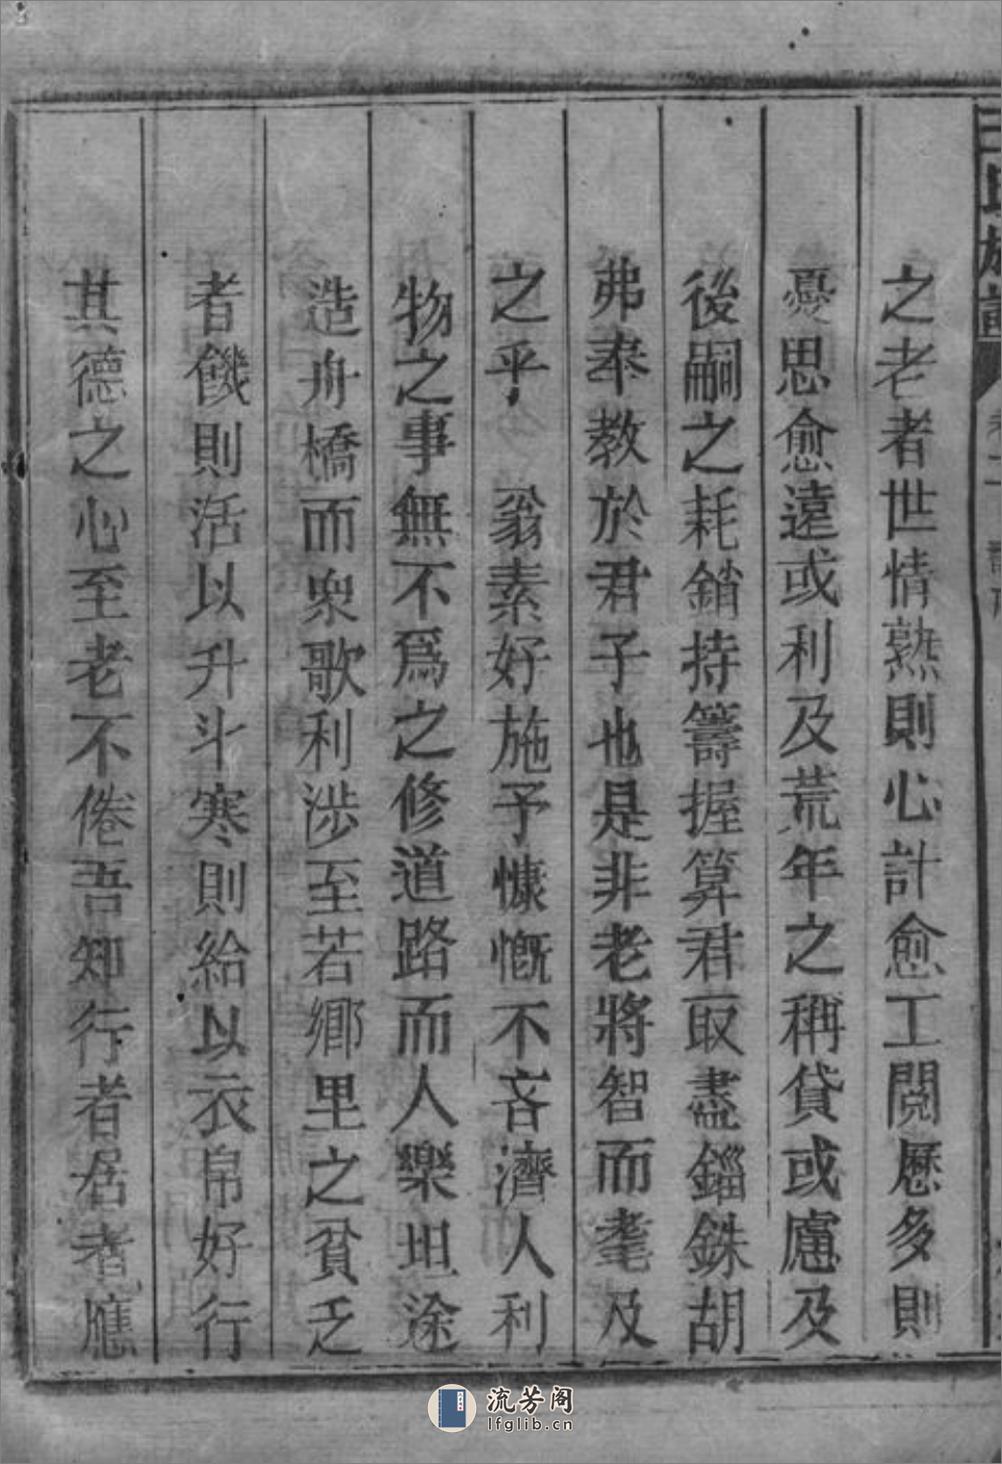 之老者世情熟則心計愈工閱歷多則
憂思愈遠或利及荒年之稱貸或慮及
後嗣之耗銷持籌握算君取盡錙銖胡
弗奉教於君子也是非老將智而耄及
之乎　翁素好施予慷慨不吝濟人利
物之事無不爲之修道路而人樂坦途
造舟橋而衆歌利涉至若鄉里之貧乏
者饑則活以升斗寒則給以衣帛好行
其德之心至老不倦吾知行者居者應
流芳阁
lfglib.cn